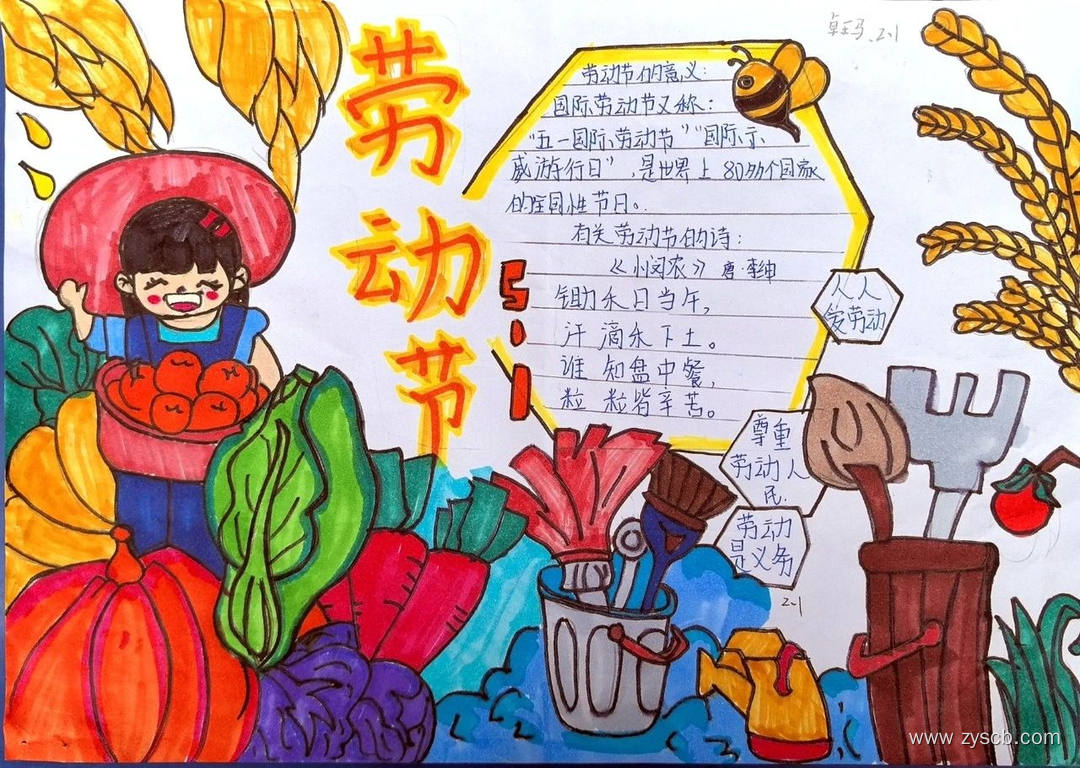 劳动节
5.1
2-1
劳动节的意义:
国际劳动节又称:
“五一国际劳动节”“国际示
威游行日”,是世界上80多个国家
的全国性节日。
有关劳动节的诗:
《悯农》唐·李绅
锄禾日当午,
汗滴禾下土。
谁知盘中餐,
粒粒皆辛苦。
人人
爱劳动
尊重
劳动人
民.
劳动
是义务
2-1
www.zyscb.com